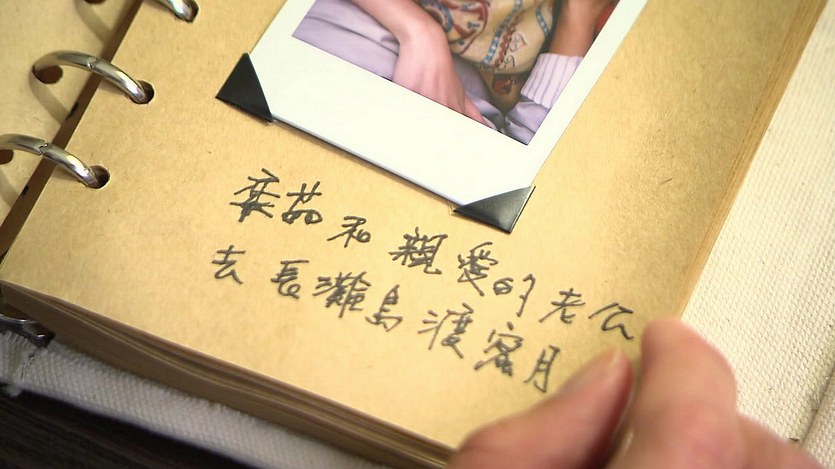 茹和親愛的老公
去長灘島渡蜜月